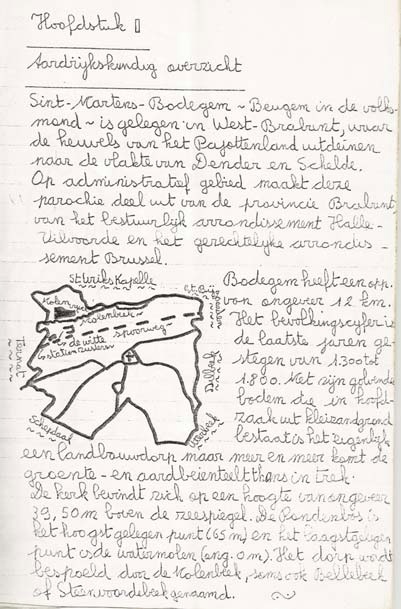 Hoofdstuk I
Aardrijkskundig overzicht
Sint-Martens-Bodegem ~ Beugem in de volks-
mond ~ is gelegen in West-Brabant, waar
de heuvels van het Pajottenland uitdeinen
naar de vlakte van Dender en Schelde.
Op administratief gebied maakt deze
parochie deel uit van de provincie Brabant,
van het bestuurlijk arrondissement Halle-
Vilvoorde en het gerechtelijke arrondis-
sement Brussel.
St Ulriks Kapelle
Molenbeek
de witte spoorweg
Ternat
Dilbeek
Schepdaal
Itterbeek
Bodegem heeft een opp.
van ongeveer 12 km.
Het bevolkingscyfer is
de laatste jaren ge-
stegen van 1.300 tot
1.800. Met zijn golvende
bodem die in hoofd-
zaak uit kleizandgrond
bestaat is het eigenlijk
een landbouwdorp maar meer en meer komt de
groente- en aardbeienteelt thans in trek.
De kerk bevindt zich op een hoogte van ongeveer
39,50 m boven de zeespiegel. De Pandenbos is
het hoogst gelegen punt (65 m) en het laagstgelegen
punt is de watermolen (ong. 0 m). Het dorp wordt
bespoeld door de Molenbeek, soms ook Bellebeek
of Steenvoordebeek genaamd.